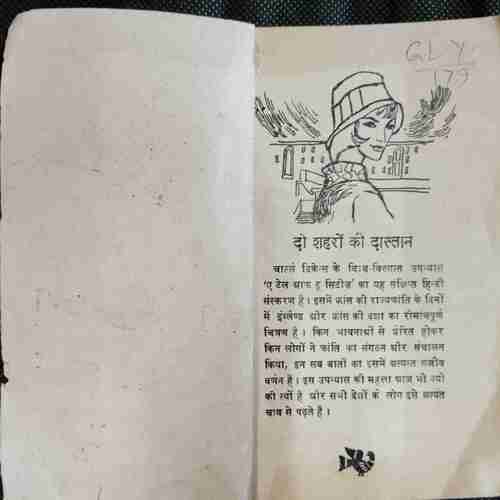 GLY
179
दो शहरों की दास्तान
चार्ल्स डिकेन्स के विश्व-विख्यात उपन्यास
'ए टेल आफ टू सिटीज़' का यह संक्षिप्त हिन्दी
संस्करण है। इसमें फ्रांस की राज्यक्रांति के दिनों
में इंग्लैण्ड और फ्रांस की दशा का रोमांचपूर्ण
चित्रण है। किन भावनाओं से प्रेरित होकर
किन लोगों ने क्रांति का संगठन और संचालन
किया, इन सब बातों का इसमें अत्यन्त सजीव
वर्णन है। इस उपन्यास की महत्ता आज भी ज्यों
की त्यों है और सभी देशों के लोग इसे अत्यंत
चाव से पढ़ते हैं।